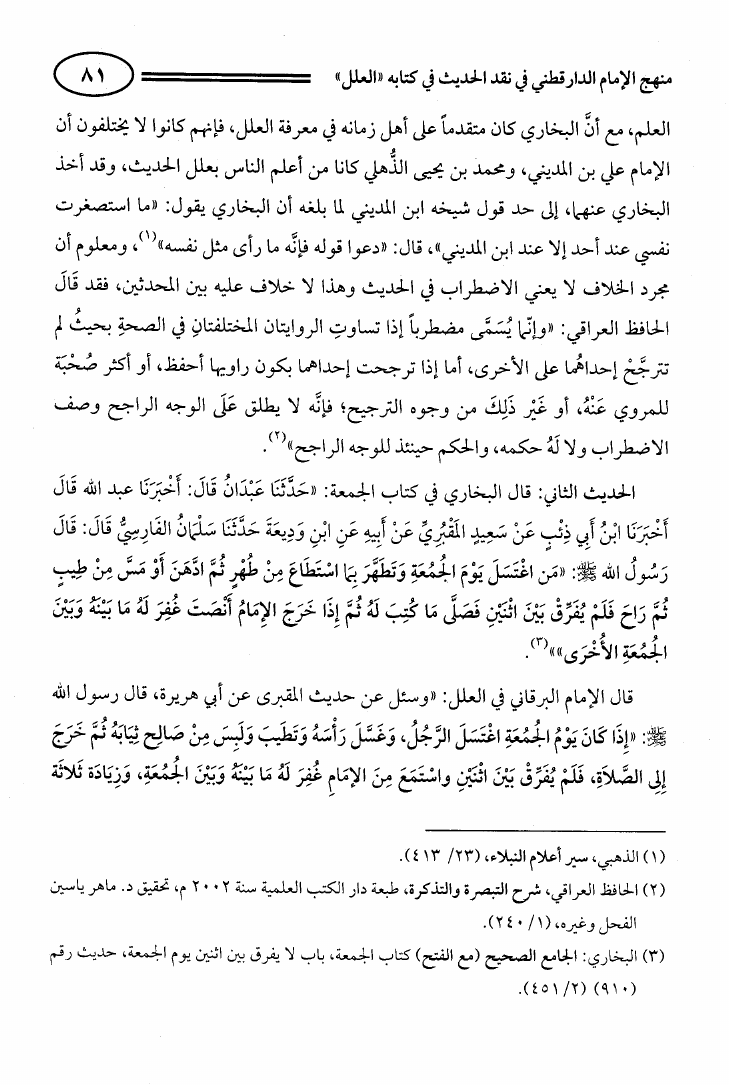 منهج الإمام الدارقطني في نقد الحديث في كتابه «العلل» ٨١
العلم، مع أنَّ البخاري كان متقدماً على أهل زمانه في معرفة العلل، فإنهم كانوا لا يختلفون أن
الإمام علي بن المديني، ومحمد بن يحيى الذُّهلي كانا من أعلم الناس بعلل الحديث، وقد أخذ
البخاري عنهما، إلى حد قول شيخه ابن المديني لما بلغه أن البخاري يقول: «ما استصغرت
نفسي عند أحد إلا عند ابن المديني»، قال: «دعوا قوله فإنَّه ما رأى مثل نفسه»(١)، ومعلوم أن
مجرد الخلاف لا يعني الاضطراب في الحديث وهذا لا خلاف عليه بين المحدثين، فقد قَالَ
الحافظ العراقي: «وإنّما يُسَمَّى مضطرباً إذا تساوتِ الروايتان المختلفتانِ في الصحةِ بحيثُ لم
تترجَّحْ إحداهُما على الأخرى، أما إذا ترجحت إحداهما بكون راويها أحفظ، أو أكثر صُحْبَة
للمروي عَنْهُ، أو غَيْر ذَلِكَ من وجوه الترجيح؛ فإنَّه لا يطلق عَلَى الوجه الراجح وصف
الاضطراب ولا لَهُ حكمه، والحكم حينئذ للوجه الراجح»(٢).
الحديث الثاني: قال البخاري في كتاب الجمعة: «حَدَّثَنَا عَبْدَانُ قَالَ: أَخْبَرَنَا عبد الله قَالَ
أَخْبَرَنَا ابْنُ أَبِي ذِئْبٍ عَنْ سَعِيدٍ المَقْبُرِيِّ عَنْ أَبِيهِ عَنِ ابْنِ وَدِيعَةَ حَدَّثَنَا سَلْمَانُ الفَارِسِيُّ قَالَ: قَالَ
رَسُولُ الله ﷺ: «مَن اغْتَسَلَ يَوْمَ الجُمُعَةِ وَتَطَهَّرَ بِمَا اسْتَطَاعَ مِنْ طُهْرٍ ثُمَّ ادَّهَنَ أَوْ مَسَّ مِنْ طِيبٍ
ثُمَّ رَاحَ فَلَمْ يُفَرِّقْ بَيْنَ اثْنَيْنِ فَصَلَّى مَا كُتِبَ لَهُ ثُمَّ إِذَا خَرَجَ الإِمَامُ أَنْصَتَ غُفِرَ لَهُ مَا بَيْنَهُ وَبَيْنَ
الجُمُعَةِ الأُخْرَى»»(٣).
قال الإمام البرقاني في العلل: «وسئل عن حديث المقبرى عن أبي هريرة، قال رسول الله
ﷺ: «إِذَا كَانَ يَوْمُ الجُمُعَةِ اغْتَسَلَ الرَّجُلُ، وَغَسَّلَ رَأْسَهُ وَتَطَيَبَ وَلَبِسَ مِنْ صَالِحِ ثِيَابَهُ ثُمَّ خَرَجَ
إِلى الصَّلاَةِ، فَلَمْ يُفَرِّقْ بَيْنَ اثْنَيْنِ واسْتَمَعَ مِنَ الإمَامِ غُفِرَ لَهُ مَا بَيْنَهُ وَبَيْنَ الجُمُعَةِ، وَزِيَادَة ثَلاَثَة
(١) الذهبي، سير أعلام النبلاء، (٢٣/ ٤١٣).
(٢) الحافظ العراقي، شرح التبصرة والتذكرة، طبعة دار الكتب العلمية سنة ٢٠٠٢ م، تحقيق د. ماهر ياسين
الفحل وغيره، (١/ ٢٤٠).
(٣) البخاري: الجامع الصحيح (مع الفتح) كتاب الجمعة، باب لا يفرق بين اثنين يوم الجمعة، حديث رقم
(٩١٠) (٢/ ٤٥١).